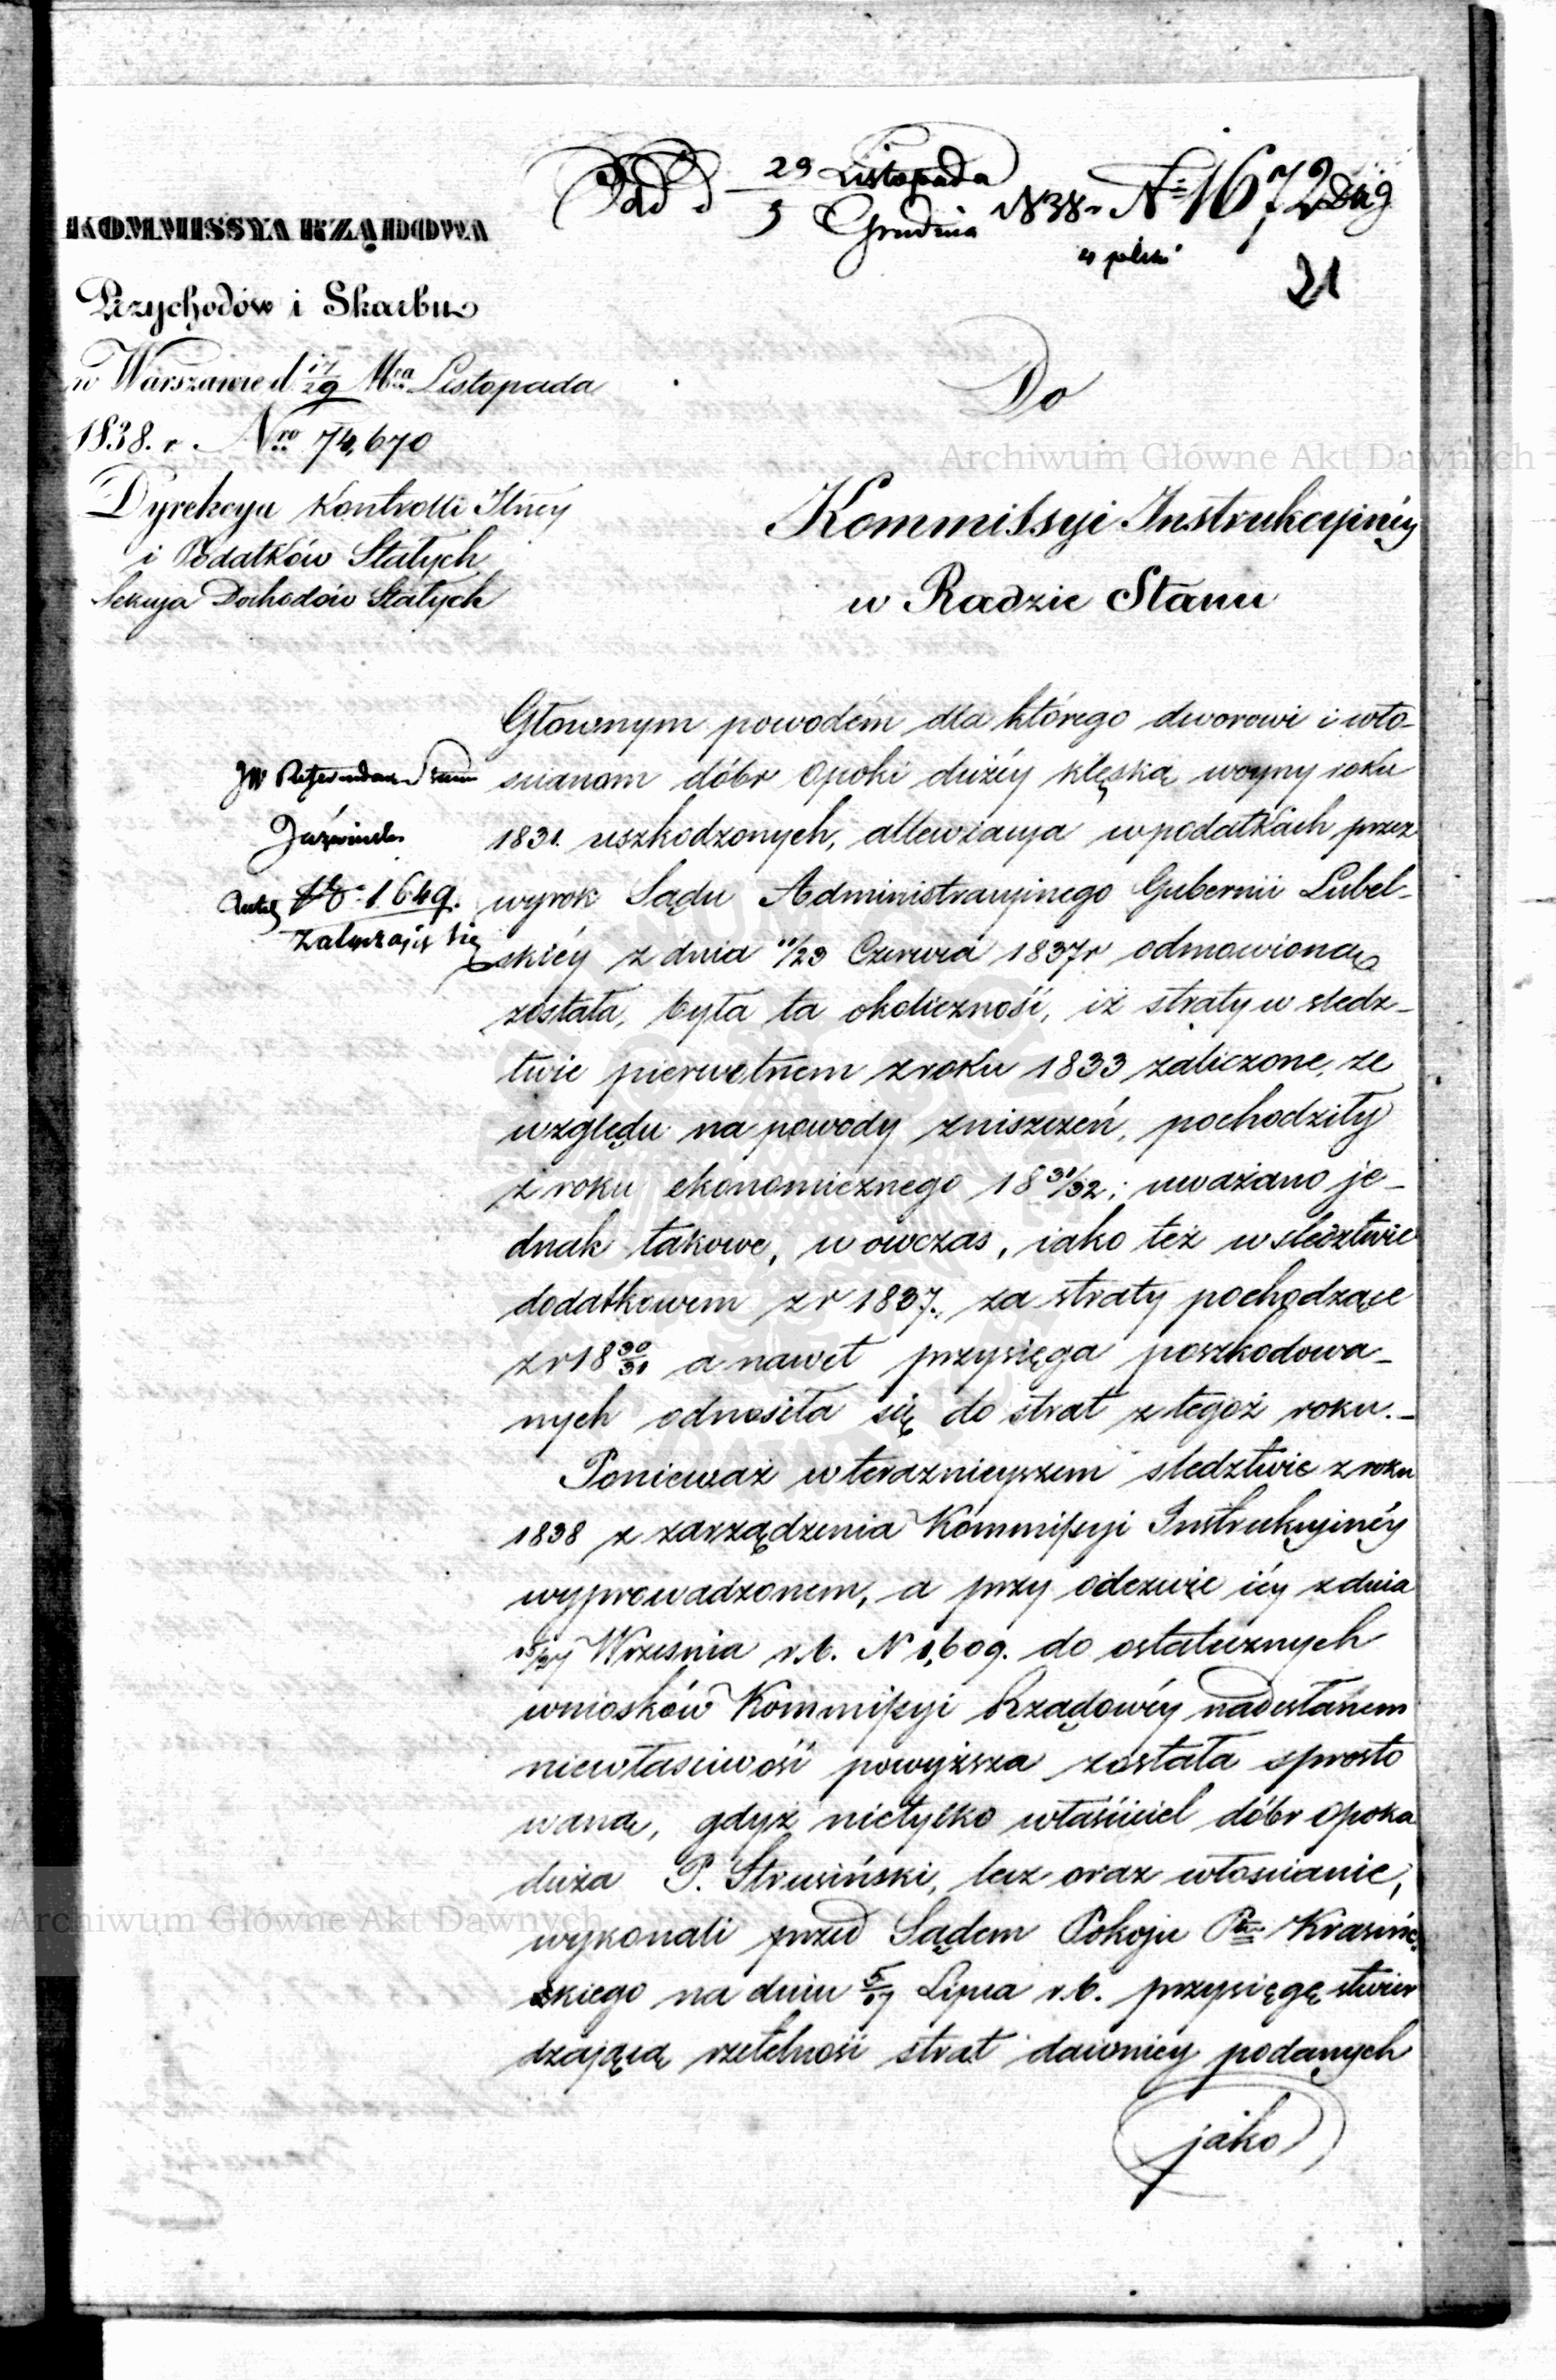 29 Listopada
5 Grudnia 1838 r. N 1672
21
KOMMISSYA RZĄDOWA
Przychodów i Skarbu
w Warszawie d. 17/29 Mca Listopada
1838. r. Nro 74,670
Dyrekcya Kontrolli
i Podatków Stałych
Sekcyja Dochodów Stałych
Do
Kommissyi Instrukcyinéy
w Radzie Stanu
JW Referendarz Stanu
N 1649.
załączając się
Głownym powodém dla którego dworowi i wło-
scianom dóbr Opoki dużéy klęską woyny roku
1831. uszkodzonych, allewiacya w podatkach przez
wyrok Sądu Administracyinego Gubernii Lubel-
skiéy z dnia 11/23 Czerwca 1837r odmowioną
została, była ta okoliczność, iż straty w sledz-
twie pierwotnem z roku 1833 zaliczone, ze
względu na powody zniszczeń, pochodziły
z roku ekonomicznego 18 31/32; uważano je-
dnak takowe, w owczas, iako też w sledztwie
dodatkowem z r 1837., za straty pochodzące
z r 18 30/31 a nawet przysięga poszkodowa-
nych odnosiła się do strat z tegoż roku.-
Ponieważ w teraznieyszem sledztwie z roku
1838 z zarządzenia Kommissyi Instrukcyinéy
wyprowadzonem, a przy odezwie iéy z dnia
15/27 Wrzesnia r.b. N 1,609. do ostatecznych
wniosków Kommissyi Rządowéy nadesłanem
niewłasciwość powyższa została sprosto
wana, gdyż nietylko właściciel dóbr Opoka
duża P. Strusiński, lecz oraz włoscianie,
wykonali przed Sądem Pokoju Ptu Krasiń-
skiego na dniu 5/17 Lipca r.b. przysięgę stwier
dzającą rzetelność strat dawniey podanych
jako
Archiwum Główne Akt Dawnych
Archiwum Główne Akt Dawnych